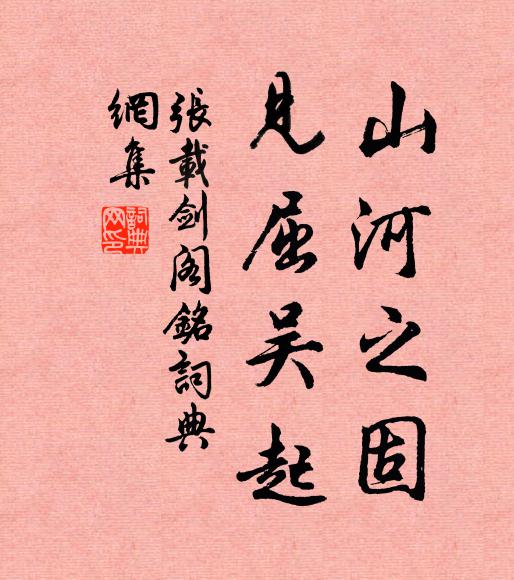 山河之固
見屈吴起
張載剑阁銘詞典
網集
詞典
网印